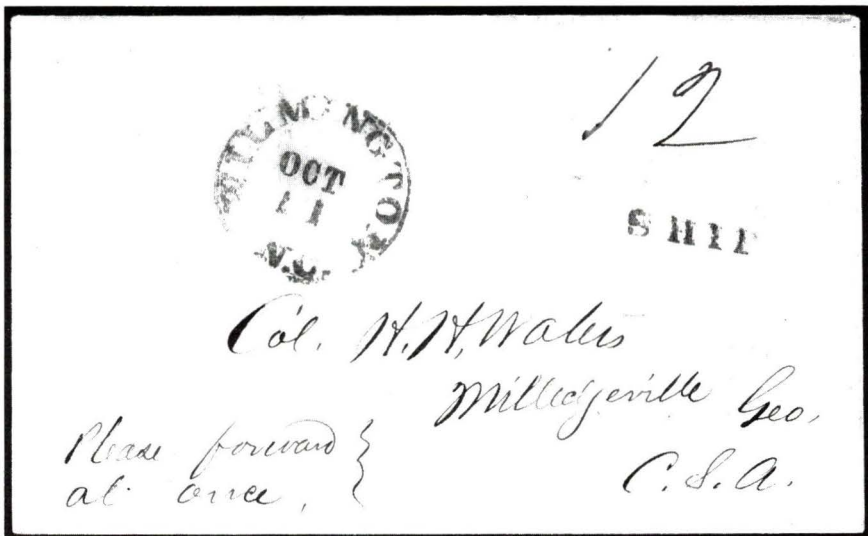 12
WILMINGTON
OCT
11
N.C.
SHIP
Col. H. H. Waters
Milledgeville Geo,
C. S. A.
Please forward
at once,